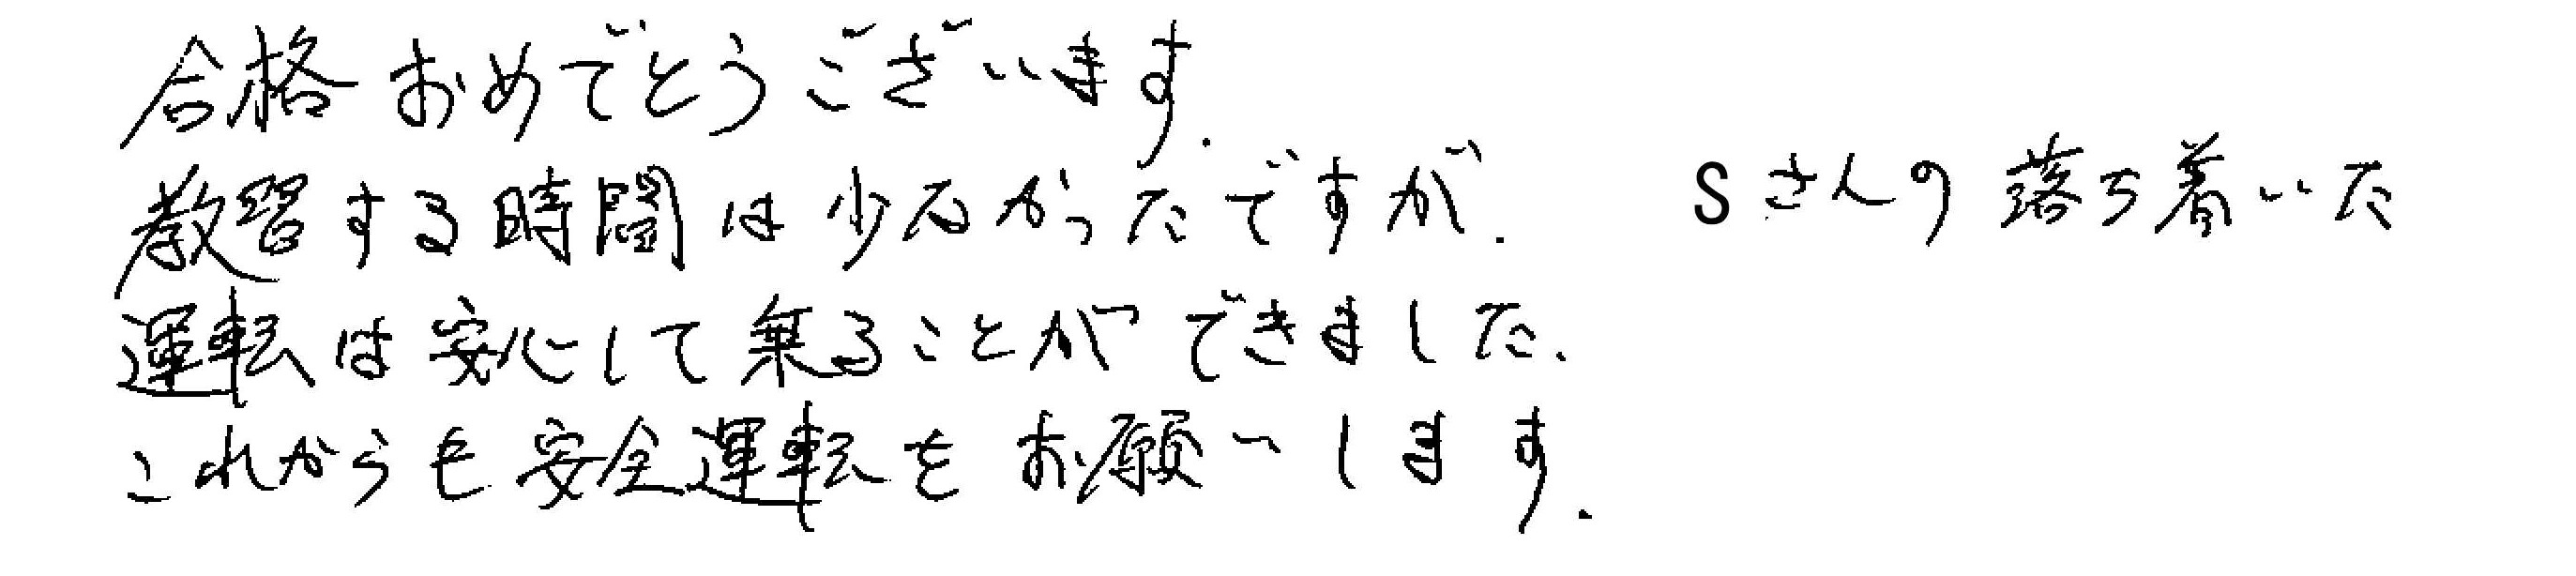 合格おめでとうございます.
教習する時間は少なかったですが. Sさんの落ち着いた
運転は安心して乗ることができました.
これからも安全運転をお願いします.